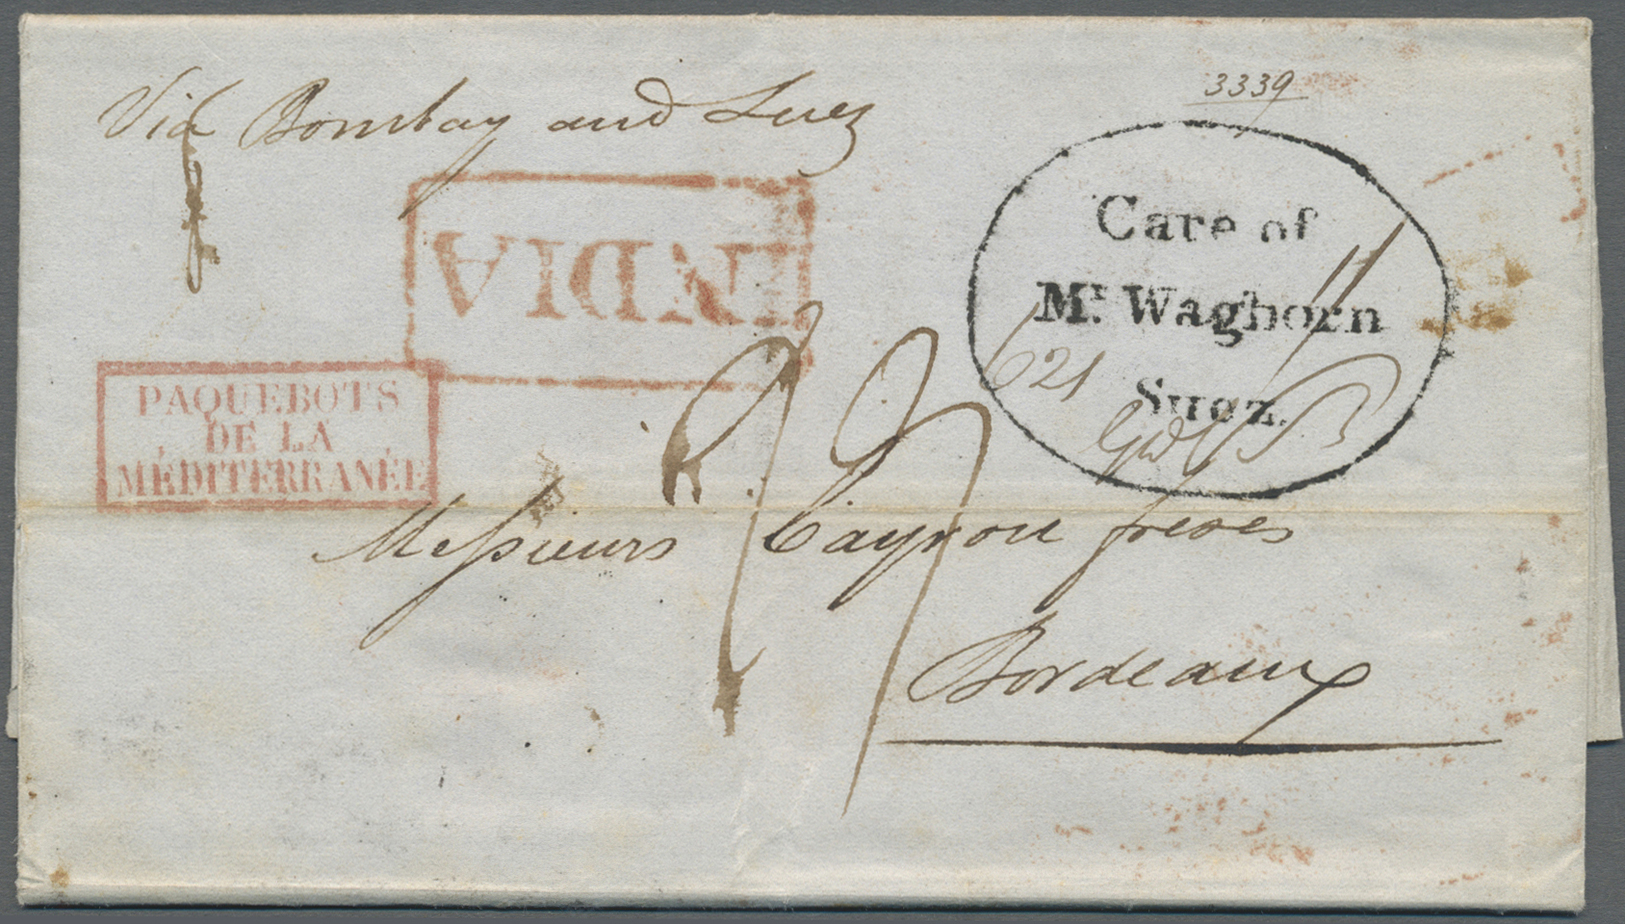 Via Bombay and Suez
3339
INDIA
Care of
Mr. Waghorn
Suez.
621
PAQUEBOTS
DE LA
MÉDITERRANÉE
Messieurs Cayrou freres
Bordeaux